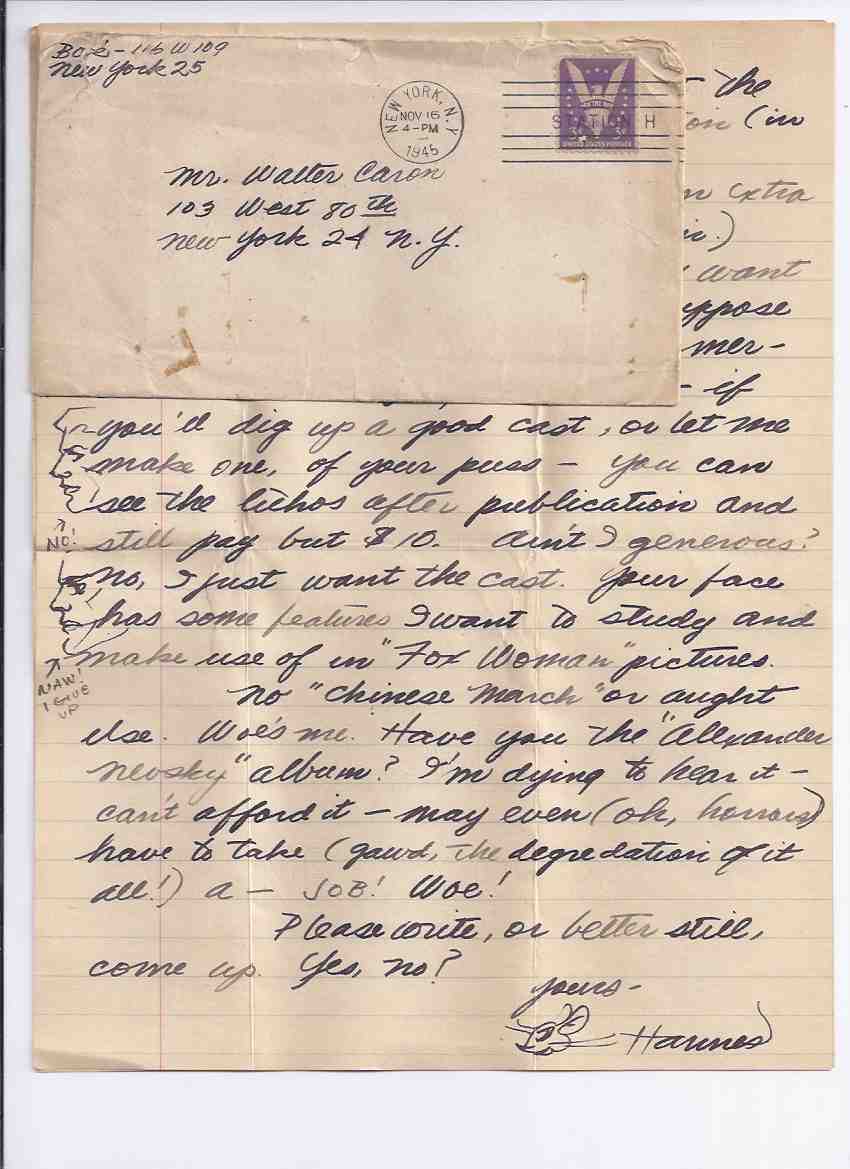 Bok - 116 W 109
New York 25
NEW YORK, N.Y.
NOV 16
4-PM
1945
STATION H
WIN THE WAR
3¢ 3¢
UNITED STATES POSTAGE
Mr. Walter Caron
103 West 80th
New York 24 N.Y.
- the
on (in
extra
ir.)
want
uppose
mer-
- if
you'll dig up a good cast, or let me
make one, of your puss - you can
see the lithos after publication and
NO!
still pay but $10. Ain't I generous?
no, I just want the cast. Your face
has some features I want to study and
make use of in "Fox Woman" pictures.
NAW!
I GIVE
UP
No "Chinese March" or aught
else. Woe's me. Have you the "Alexander
Nevsky" album? I'm dying to hear it -
can't afford it - may even (oh, horrors)
have to take (gawd, the degredation of it
all!) a - JOB! Woe!
Please write, or better still,
come up. Yes, no?
yours -
Hannes